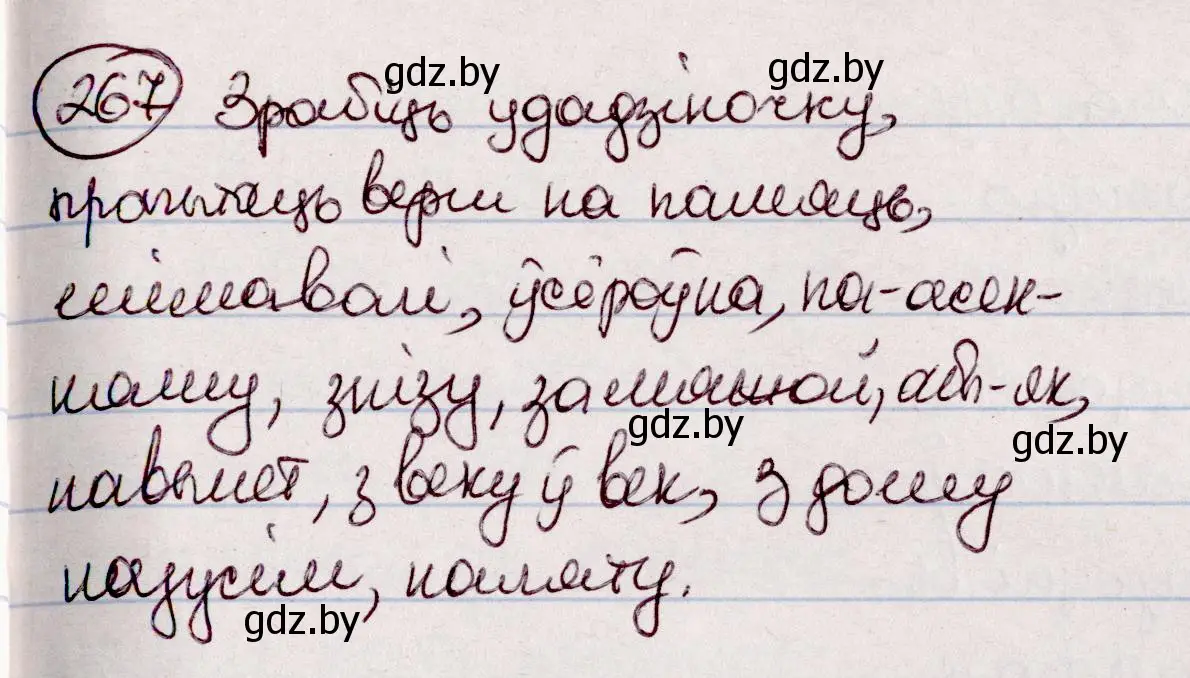 267 Зрабіць удадзіночку,
прачытаць верш на памяць,
мімаволі, ўсёроўна, па-асен-
няму, знізу, за мяжой, абы-як,
навылет, з веку ў век, з дому
назусім, памяту.
gdz.by
gdz.by
gdz.by
gdz.by
gdz.by